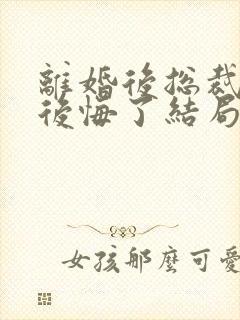 離婚後總裁
後悔了結局
女孩那麼可愛